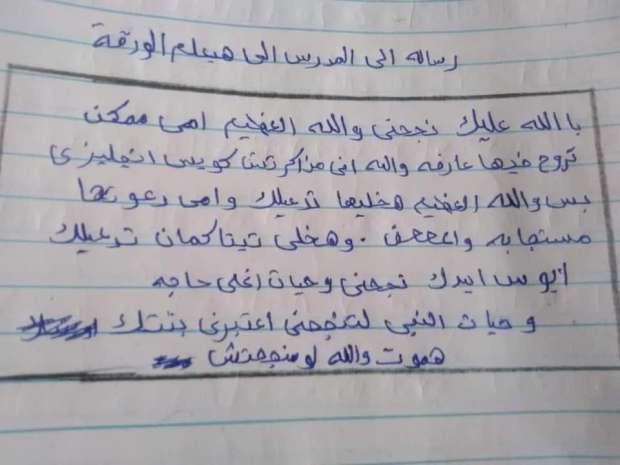 رساله الى المدرس الى هيعلم الورقة
با الله عليك نجحنى والله العظيم امى ممكن
تروح فيها عارفه والله انى مذاكرتش كويس انجليزى
بس والله العظيم هخليها تدعيلك وامى دعوتها
مستجابه وا وهخلى تيتا كمان تدعيلك
ابوس ايدك نجحنى وحيات اغلى حاجه
وحيات النبى لتنجحنى اعتبرنى بنتك
هموت والله لو منجحتش